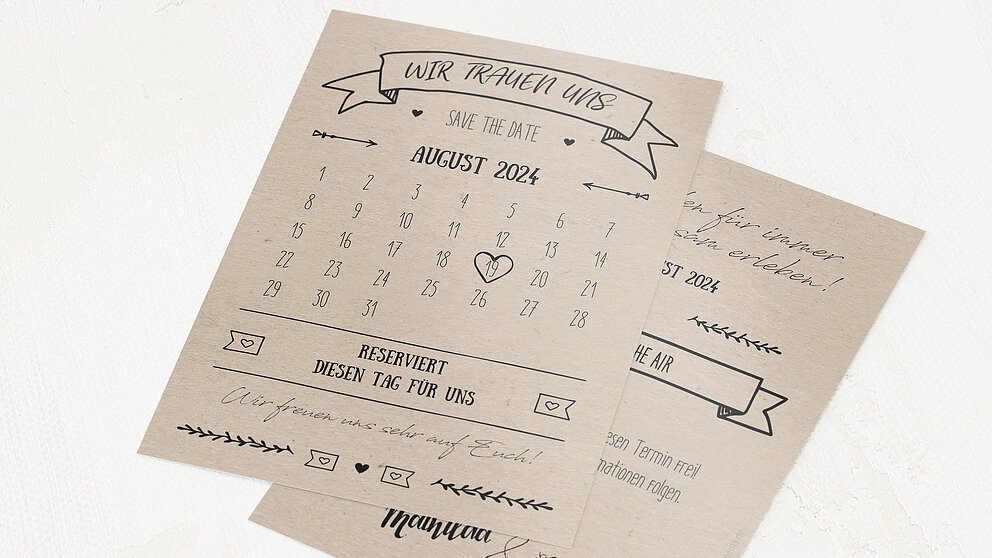 WIR TRAUEN UNS
SAVE THE DATE
AUGUST 2024
1 2 3 4 5 6 7
8 9 10 11 12 13 14
15 16 17 18 19 20 21
22 23 24 25 26 27 28
29 30 31
RESERVIERT
DIESEN TAG FÜR UNS
Wir freuen uns sehr auf Euch!
für immer
erleben!
2024
AIR
Termin frei!
folgen.
Mathilda &